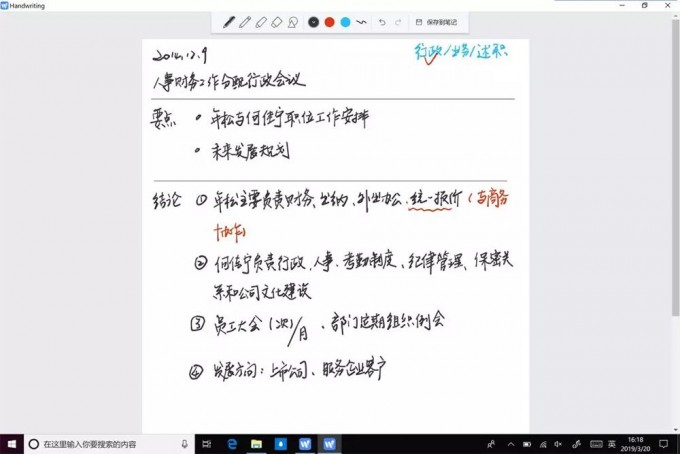 Handwriting
保存到笔记
2014.12.9
行政/业务/述职
人事财务工作分配行政会议
要点 • 年松与何佳宁职位工作安排
• 未来发展规划
结论 ① 年松主要负责财务、出纳、外出办公、统一报价(与商务
协作)
② 何佳宁负责行政、人事、考勤制度、纪律管理、保密关
系和公司文化建设
③ 员工大会(次)/月、部门定期组织例会
④ 发展方向:上市公司、服务企业客户
在这里输入你要搜索的内容
英
16:18
2019/3/20